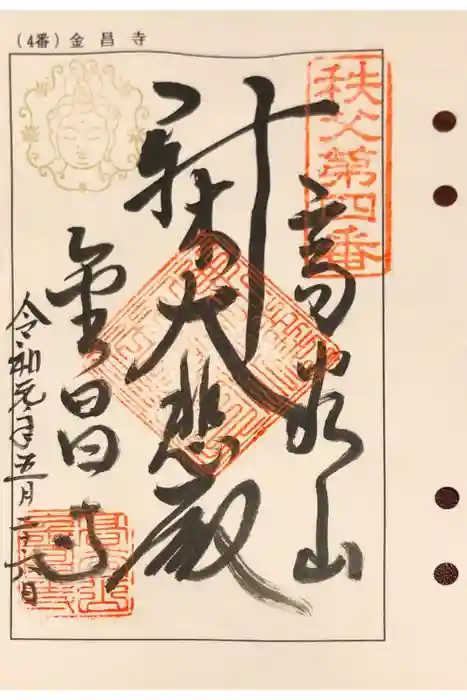 (4番)金昌寺
秩父第四番
高谷山
新木大悲殿
金昌寺
令和元年五月二十六日